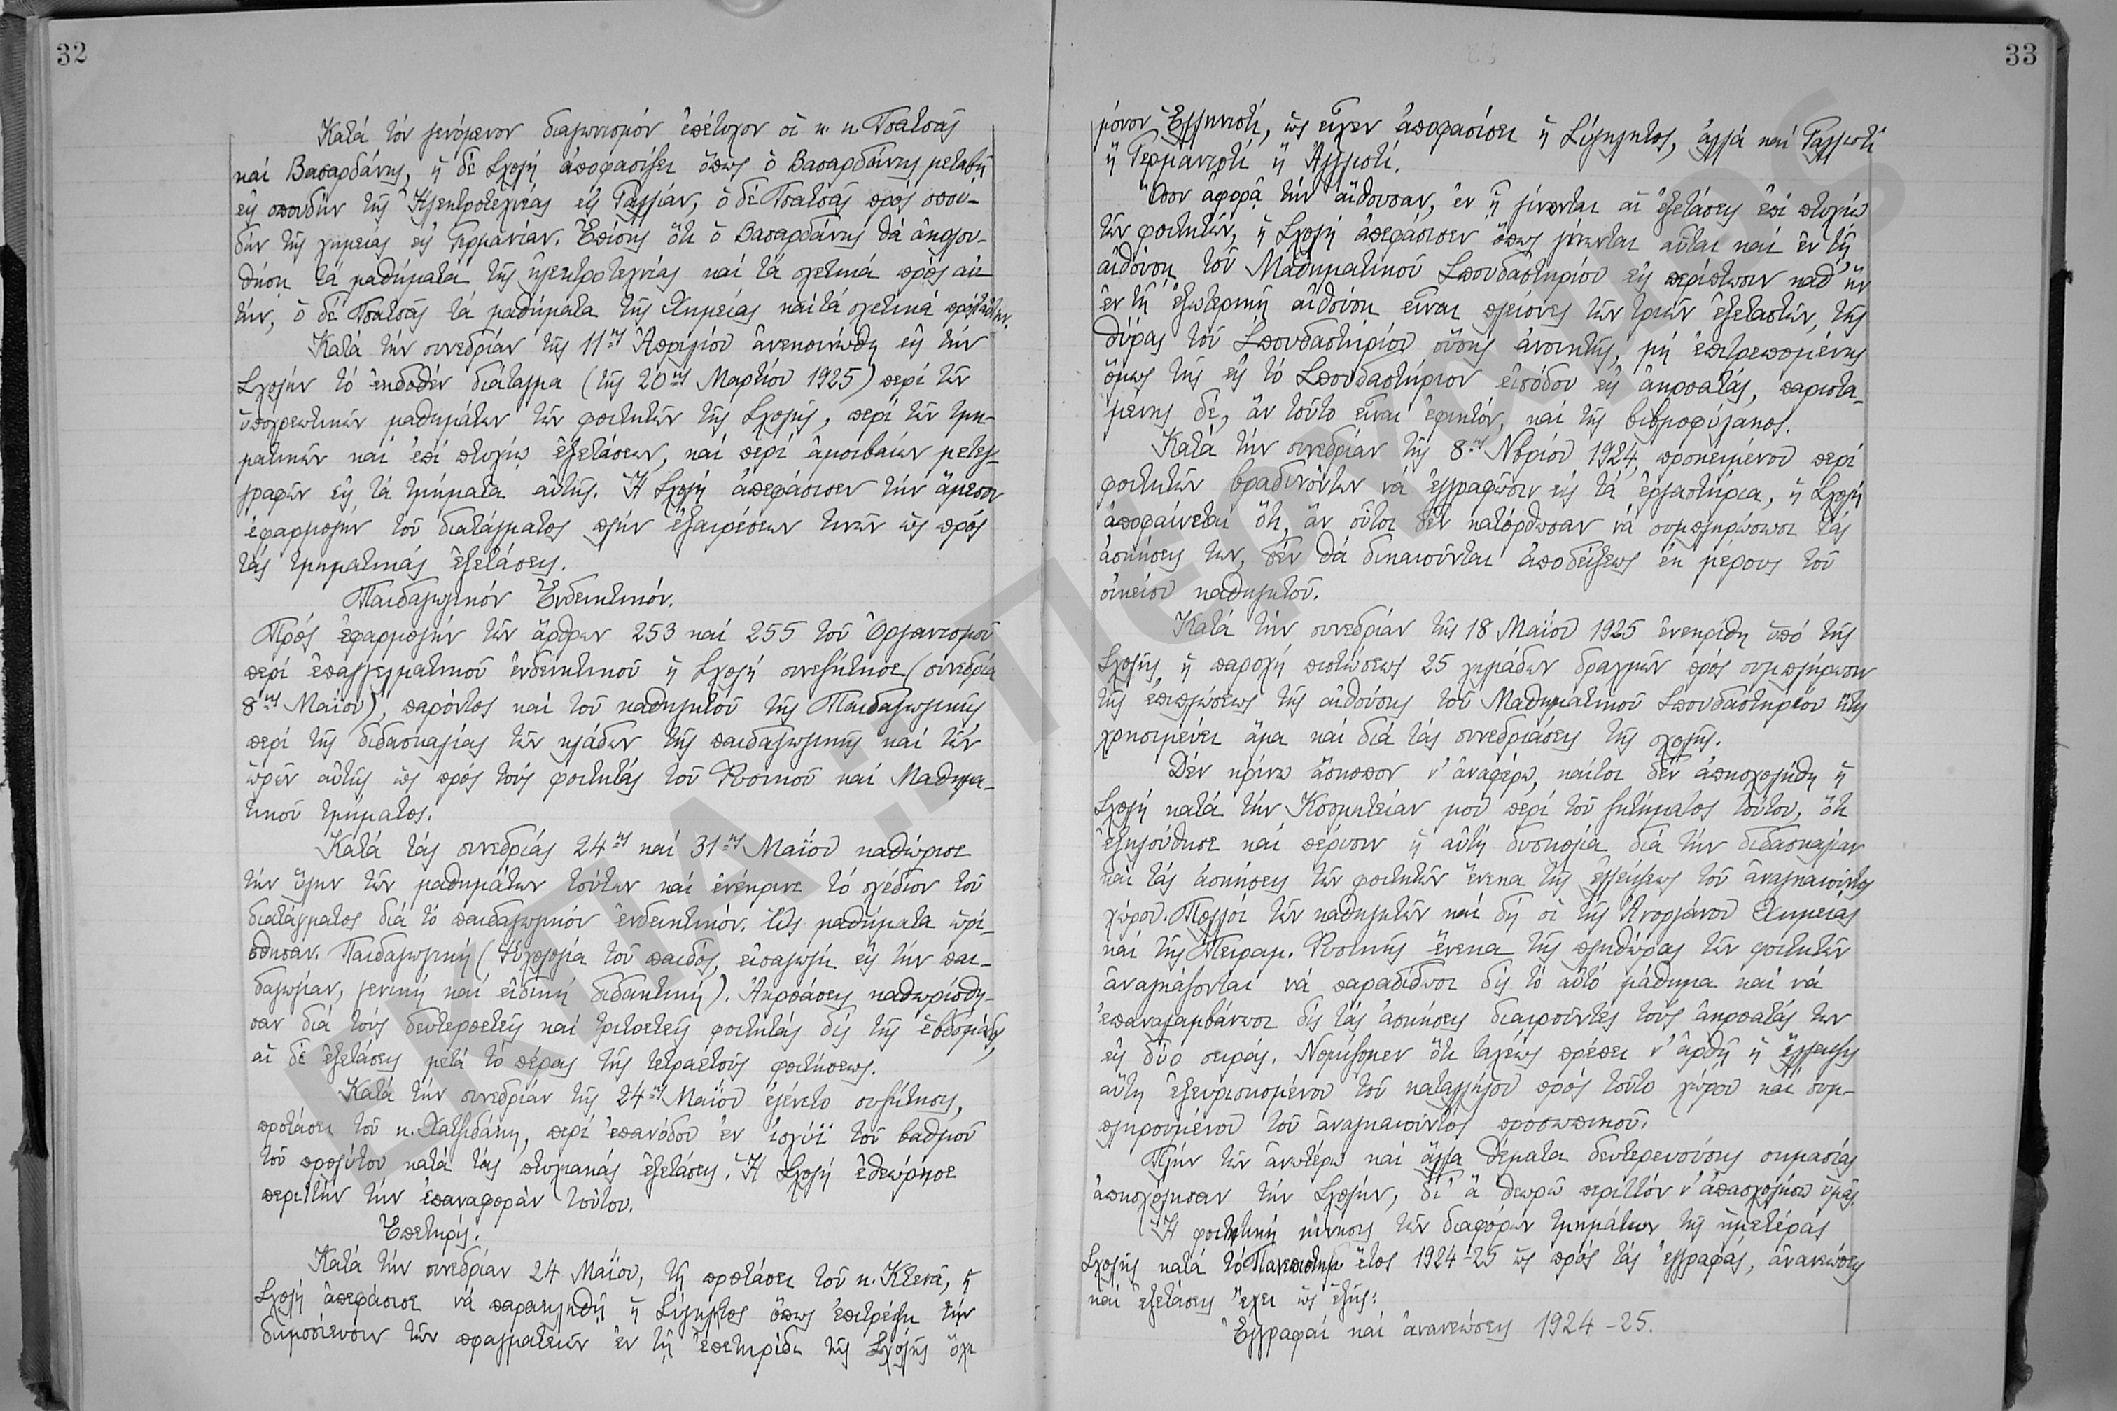 32
Κατά τόν γενόμενον διαγωνισμόν ἐπέτυχον οἱ κ. κ. Τσατσᾶς
καί Βασαρδάνης, ἡ δέ Σχολή ἀποφασίζει ὅπως ὁ Βασαρδάνης μεταβῇ
εἰς σπουδήν τῆς Ἠλεκτροτεχνίας εἰς Γαλλίαν, ὁ δέ Τσατσᾶς πρός σπου-
δήν τῆς χημείας εἰς Γερμανίαν. Ἐπίσης ὅτι ὁ Βασαρδάνης θά ἀκολου-
θήσῃ τά μαθήματα τῆς ἠλεκτροτεχνίας καί τά σχετικά πρός αὐ
τήν, ὁ δέ Τσατσᾶς τά μαθήματα τῆς Χημείας καί τά σχετικά πρός αὐτήν.
Κατά τήν συνεδρίαν τῆς 11ης Ἀπριλίου ἀνεκοινώθη εἰς τήν
Σχολήν τό ἐκδοθέν διάταγμα (τῆς 20ης Μαρτίου 1925) περί τῶν
ὑποχρεωτικῶν μαθημάτων τῶν φοιτητῶν τῆς Σχολῆς, περί τῶν τμη-
ματικῶν καί ἐπί πτυχίῳ ἐξετάσεων, καί περί ἀμοιβαίων μετεγ-
γραφῶν εἰς τά τμήματα αὐτῆς. Ἡ Σχολή ἀπεφάσισεν τήν ἄμεσον
ἐφαρμογήν τοῦ διατάγματος πλήν ἐξαιρέσεων τινῶν ὡς πρός
τάς τμηματικάς ἐξετάσεις.
Παιδαγωγικόν Ἐνδεικτικόν.
Πρός ἐφαρμογήν τῶν ἄρθρων 253 καί 255 τοῦ Ὀργανισμοῦ
περί ἐπαγγελματικοῦ ἐνδεικτικοῦ ἡ Σχολή συνεζήτησε (συνεδρία
8ης Μαΐου), παρόντος καί τοῦ καθηγητοῦ τῆς Παιδαγωγικῆς
περί τῆς διδασκαλίας τῶν κλάδων τῆς παιδαγωγικῆς καί τῶν
ὡρῶν αὐτῆς ὡς πρός τούς φοιτητάς τοῦ Φυσικοῦ καί Μαθημα-
τικοῦ τμήματος.
Κατά τάς συνεδρίας 24ης καί 31ης Μαΐου καθώρισε
τήν ὕλην τῶν μαθημάτων τούτων καί ἐνέκρινε τό σχέδιον τοῦ
διατάγματος διά τό παιδαγωγικόν ἐνδεικτικόν. Ὡς μαθήματα ὡρί-
σθησαν. Παιδαγωγική (Ψυχολογία τοῦ παιδός, εἰσαγωγή εἰς τήν παι-
δαγωγίαν, γενική καί εἰδική διδακτική). Ἀκροάσεις καθωρίσθη-
σαν διά τούς δευτεροετεῖς καί τριτοετεῖς φοιτητάς δίς τῆς ἑβδομάδος,
αἱ δέ ἐξετάσεις μετά τό πέρας τῆς τετραετοῦς φοιτήσεως.
Κατά τήν συνεδρίαν τῆς 24ης Μαΐου ἐγένετο συζήτησις,
προτάσει τοῦ κ. Χατζιδάκη, περί ἐπανόδου ἐν ἰσχύϊ τοῦ βαθμοῦ
τοῦ προλύτου κατά τάς πτυχιακάς ἐξετάσεις. Ἡ Σχολή ἐθεώρησε
περιττήν τήν ἐπαναφοράν τούτου.
Ἐπετηρίς.
Κατά τήν συνεδρίαν 24 Μαΐου, τῇ προτάσει τοῦ κ. Κτενᾶ, ἡ
Σχολή ἀπεφάσισε νά παρακληθῇ ἡ Σύγκλητος ὅπως ἐπιτρέψῃ τήν
δημοσίευσιν τῶν πραγματειῶν ἐν τῇ ἐπετηρίδι τῆς Σχολῆς ὄχι
33
μόνον Ἑλληνιστί, ὡς εἶχεν ἀποφασίσει ἡ Σύγκλητος, ἀλλά καί Γαλλιστί
ἤ Γερμανιστί ἤ Ἀγγλιστί.
Ὅσον ἀφορᾷ τήν αἴθουσαν, ἐν ᾗ γίνονται αἱ ἐξετάσεις ἐπί πτυχίῳ
τῶν φοιτητῶν, ἡ Σχολή ἀπεφάσισεν ὅπως γίνωνται αὗται καί ἐν τῇ
αἰθούσῃ τοῦ Μαθηματικοῦ Σπουδαστηρίου εἰς περίπτωσιν καθ' ἥν
ἐν τῇ ἐξωτερικῇ αἰθούσῃ εἶναι πλείονες τῶν τριῶν ἐξεταστῶν, τῆς
θύρας τοῦ Σπουδαστηρίου οὔσης ἀνοικτῆς, μή ἐπιτρεπομένης
ὅμως τῆς εἰς τό Σπουδαστήριον εἰσόδου εἰς ἀκροατάς, παριστα-
μένης δέ, ἄν τοῦτο εἶναι ἐφικτόν, καί τῆς βιβλιοφύλακος.
Κατά τήν συνεδρίαν τῆς 8ης Νβρίου 1924, προκειμένου περί
φοιτητῶν βραδυνόντων νά ἐγγραφῶσιν εἰς τά ἐργαστήρια, ἡ Σχολή
ἀποφαίνεται ὅτι, ἄν οὗτοι δέν κατόρθωσαν νά συμπληρώσωσι τάς
ἀσκήσεις των, δέν θά δικαιοῦνται ἀποδείξεως ἐκ μέρους τοῦ
οἰκείου καθηγητοῦ.
Κατά τήν συνεδρίαν τῆς 18 Μαΐου 1925 ἐνεκρίθη ὑπό τῆς
Σχολῆς ἡ παροχή πιστώσεως 25 χιλιάδων δραχμῶν πρός συμπλήρωσιν
τῆς ἐπιπλώσεως τῆς αἰθούσης τοῦ Μαθηματικοῦ Σπουδαστηρίου ἥτις
χρησιμεύει ἅμα καί διά τάς συνεδριάσεις τῆς σχολῆς.
Δέν κρίνω ἄσκοπον ν' ἀναφέρω, καίτοι δέν ἀπησχολήθη ἡ
Σχολή κατά τήν Κοσμητείαν μου περί τοῦ ζητήματος τούτου, ὅτι
ἐξηκολούθησε καί πέρυσιν ἡ αὐτή δυσκολία διά τήν διδασκαλίαν
καί τάς ἀσκήσεις τῶν φοιτητῶν ἕνεκα τῆς ἐλλείψεως τοῦ ἀναγκαιοῦντος
χώρου. Πολλοί τῶν καθηγητῶν καί δή οἱ τῆς Ἀνοργάνου Χημείας
καί τῆς Πειραμ. Φυσικῆς ἕνεκα τῆς πληθώρας τῶν φοιτητῶν
ἀναγκάζονται νά παραδίδωσι δίς τό αὐτό μάθημα καί νά
ἐπαναλαμβάνωσι δίς τάς ἀσκήσεις διαιροῦντες τούς ἀκροατάς των
εἰς δύο σειράς. Νομίζομεν ὅτι ταχέως πρέπει ν' ἀρθῇ ἡ ἔλλειψις
αὕτη ἐξευρισκομένου τοῦ καταλλήλου πρός τοῦτο χώρου καί συμ-
πληρουμένου τοῦ ἀναγκαιοῦντος προσωπικοῦ.
Πλήν τῶν ἀνωτέρω καί ἄλλα θέματα δευτερευούσης σημασίας
ἀπησχόλησαν τήν Σχολήν, δι' ἅ θεωρῶ περιττόν ν' ἀπασχολήσω ὑμᾶς.
Ἡ φοιτητική κίνησις τῶν διαφόρων τμημάτων τῆς ἡμετέρας
Σχολῆς κατά τό Πανεπιστημ ἔτος 1924-25 ὡς πρός τάς ἐγγραφάς, ἀνανεώσεις
καί ἐξετάσεις ἔχει ὡς ἑξῆς:
Ἐγγραφαί καί ἀνανεώσεις 1924-25.